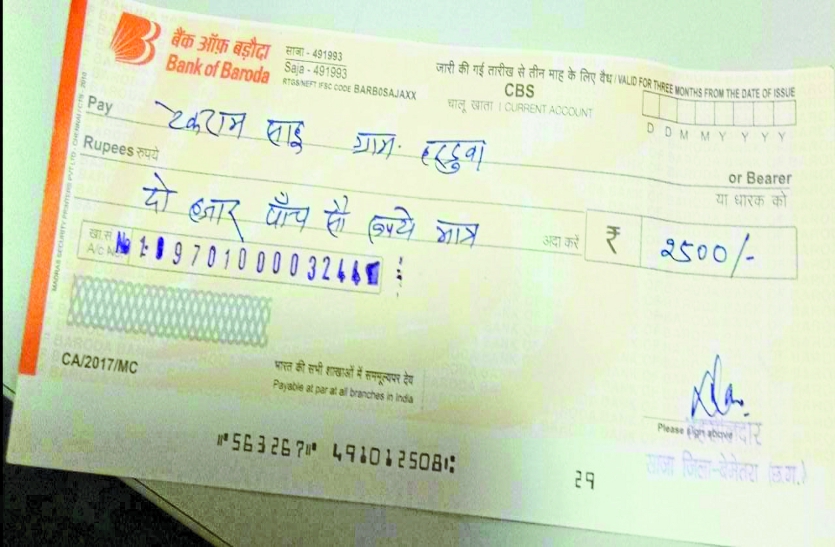 बैंक ऑफ़ बड़ौदा
Bank of Baroda
साजा - 491993
Saja - 491993
RTGS/NEFT IFSC CODE BARB0SAJAXX
जारी की गई तारीख से तीन माह के लिए वैध / VALID FOR THREE MONTHS FROM THE DATE OF ISSUE
CBS
चालू खाता / CURRENT ACCOUNT
D D M M Y Y Y Y
Pay टेकराम साहू ग्राम. हरडुवा
or Bearer
या धारक को
Rupees रुपये
दो हजार पाँच सौ रूपये मात्र
अदा करें ₹ 2500/-
खा.सं.
A/c No.
CA/2017/MC
भारत की सभी शाखाओं में सममूल्यपर देय
Payable at par at all branches in India
Please sign above
साजा जिला-बेमेतरा (छ.ग.)
⑈563267⑈ 491012508⑆ 29